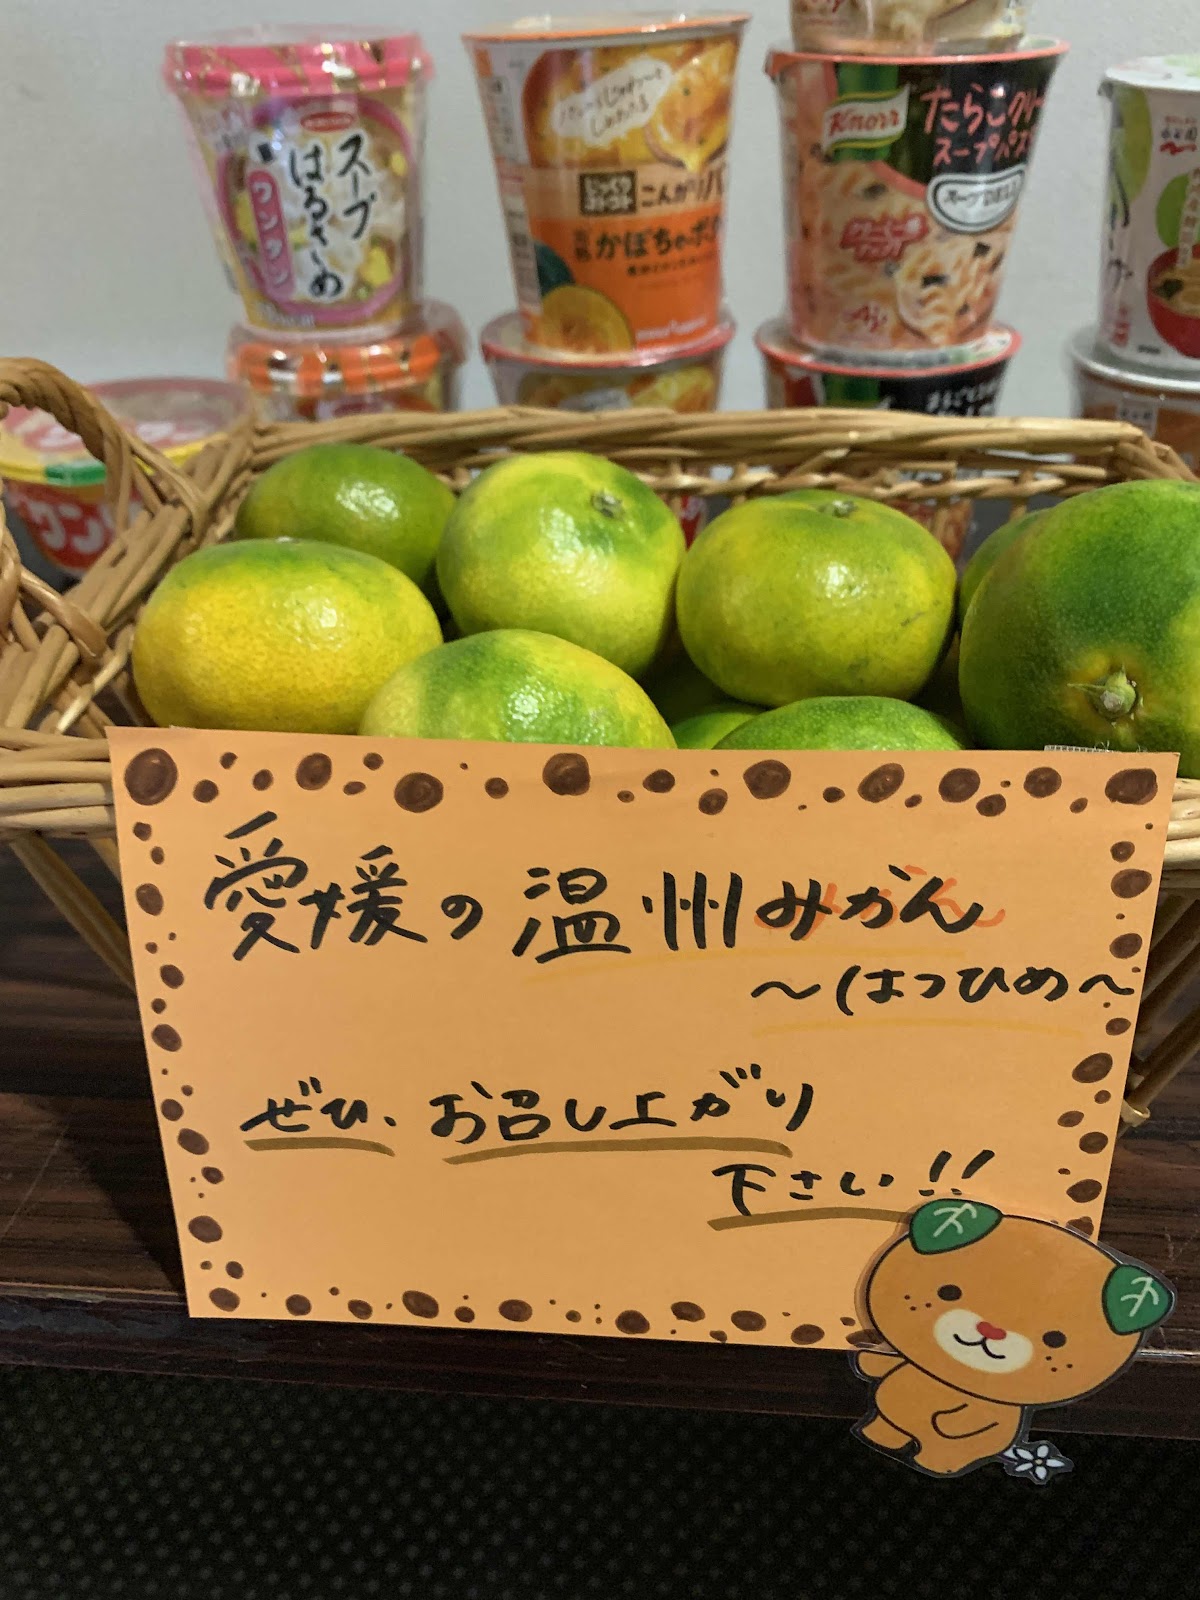 スープ
はるさめ
ワンタン
じっくり
コトコト
こんがりパ
かぼちゃポタ
Knorr
たらこクリー
スープパス
スープDELI
ワンタ
愛媛の温州みかん
～(はつひめ～
ぜひ、お召し上がり
下さい!!